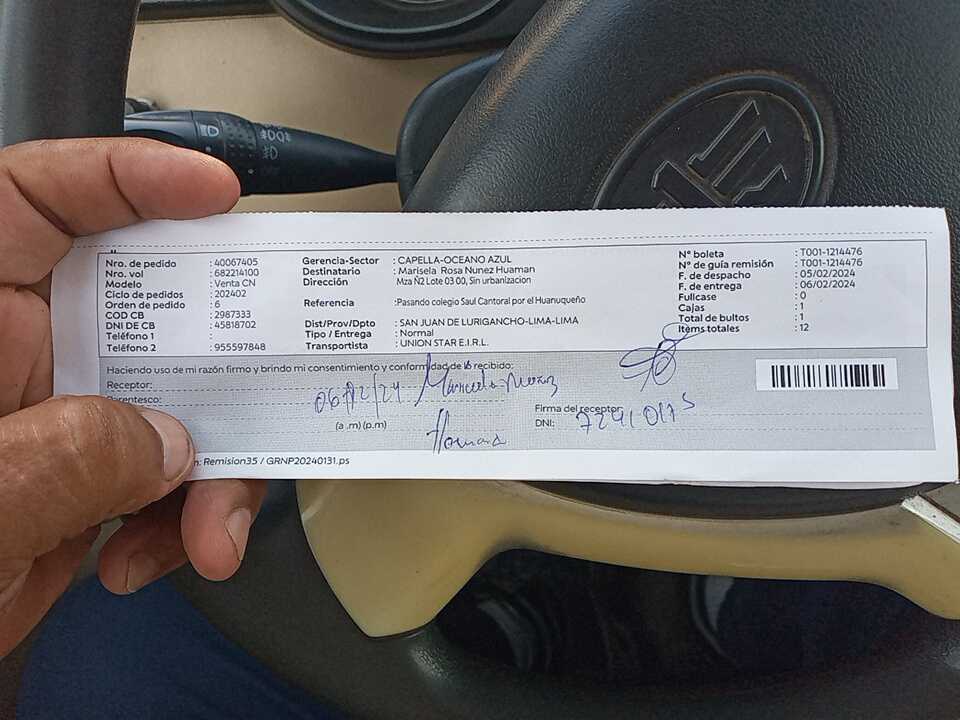 Nro. de pedido : 40067405
Nro. vol : 682214100
Modelo : Venta CN
Ciclo de pedidos : 202402
Orden de pedido : 6
COD CB : 2987333
DNI DE CB : 45818702
Teléfono 1 :
Teléfono 2 : 955597848
Gerencia-Sector : CAPELLA-OCEANO AZUL
Destinatario : Marisela Rosa Nunez Huaman
Dirección : Mza Ñ2 Lote 03 00, Sin urbanizacion
Referencia : Pasando colegio Saul Cantoral por el Huanuqueño
Dist/Prov/Dpto : SAN JUAN DE LURIGANCHO-LIMA-LIMA
Tipo / Entrega : Normal
Transportista : UNION STAR E.I.R.L.
N° boleta : T001-1214476
N° de guía remisión : T001-1214476
F. de despacho : 05/02/2024
F. de entrega : 06/02/2024
Fullcase : 0
Cajas : 1
Total de bultos : 1
Items totales : 12
Haciendo uso de mi razón firmo y brindo mi consentimiento y conformidad de lo recibido:
Receptor:
Parentesco:
(a .m) (p.m)
Firma del receptor
DNI:
n: Remision35 / GRNP20240131.ps